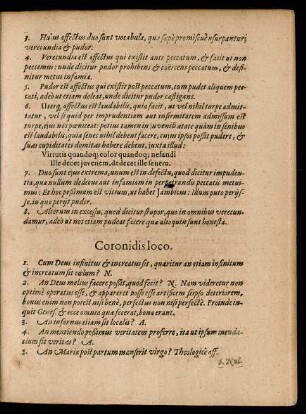 3. Huius affectus duo sunt vocabula, quæ sæpe promiscuè usurpantur:
verecundia & pudor.
4. Verecundia est affectus qui existit ante peccatum, & facit ut non
peccemus: unde dicitur pudor prohibens & coërcens peccatum, & defi-
nitur metus infamiæ.
5. Pudor est affectus qui existit post peccatum, cum pudet aliquem pec-
cati, adeo ut inde erubescat, unde dicitur pudor castigans.
6. Uterq; affectus est laudabilis, quia facit, ut vel nihil turpe admit-
tatur, vel si quid per imprudentiam aut infirmitatem admissum est
turpe, ejus nos pœniteat: potius tamen in juvenili ætate quàm in senibus
est laudabilis. quia senes nihil debent facere, cujus ipsos possit pudere, &
suas cupiditates domitas habere debent, juxta illud:
Virtutis quandoq; color quandoq; nefandi
Ille decet juvenem, dedecet ille senem.
7. Duo sunt ejus extrema, unum est in defectu, quod dicitur impuden-
tia, qua nullum dedecus aut infamiam in perpetrandis peccatis metui-
mus: Et hoc pessimum est vitium, ut habet Jambicum: illum puto perij-
se, in quo perijt pudor.
8. Alterum in excessu, quod dicitur stupor, quo in omnibus verecun-
damur, adeò ut nos etiam pudeat facere quæ alioqui sunt honesta.
Coronidis loco.
1. Cum Deus infinitus & increatus sit, quæritur an etiam infinitum
& increatum sit cœlum? N.
2. An Deus melius facere possit, quod fecit? N. Nam videretur non
optimè operatus esse, & appareret posse esse artificem seipso deteriorem,
bonus enim non potest nisi benè, perfectus non nisi perfectè. Proinde in-
quit Genes: & ecce omnia quæ fecerat, bona erant.
3. An infernus etiam sit localis? A.
4. An mentiendo possimus veritatem proferre, ita ut ipsum menda-
cium sit veritas? A.
5. An Maria post partum manserit virgo? Theologicè aff.